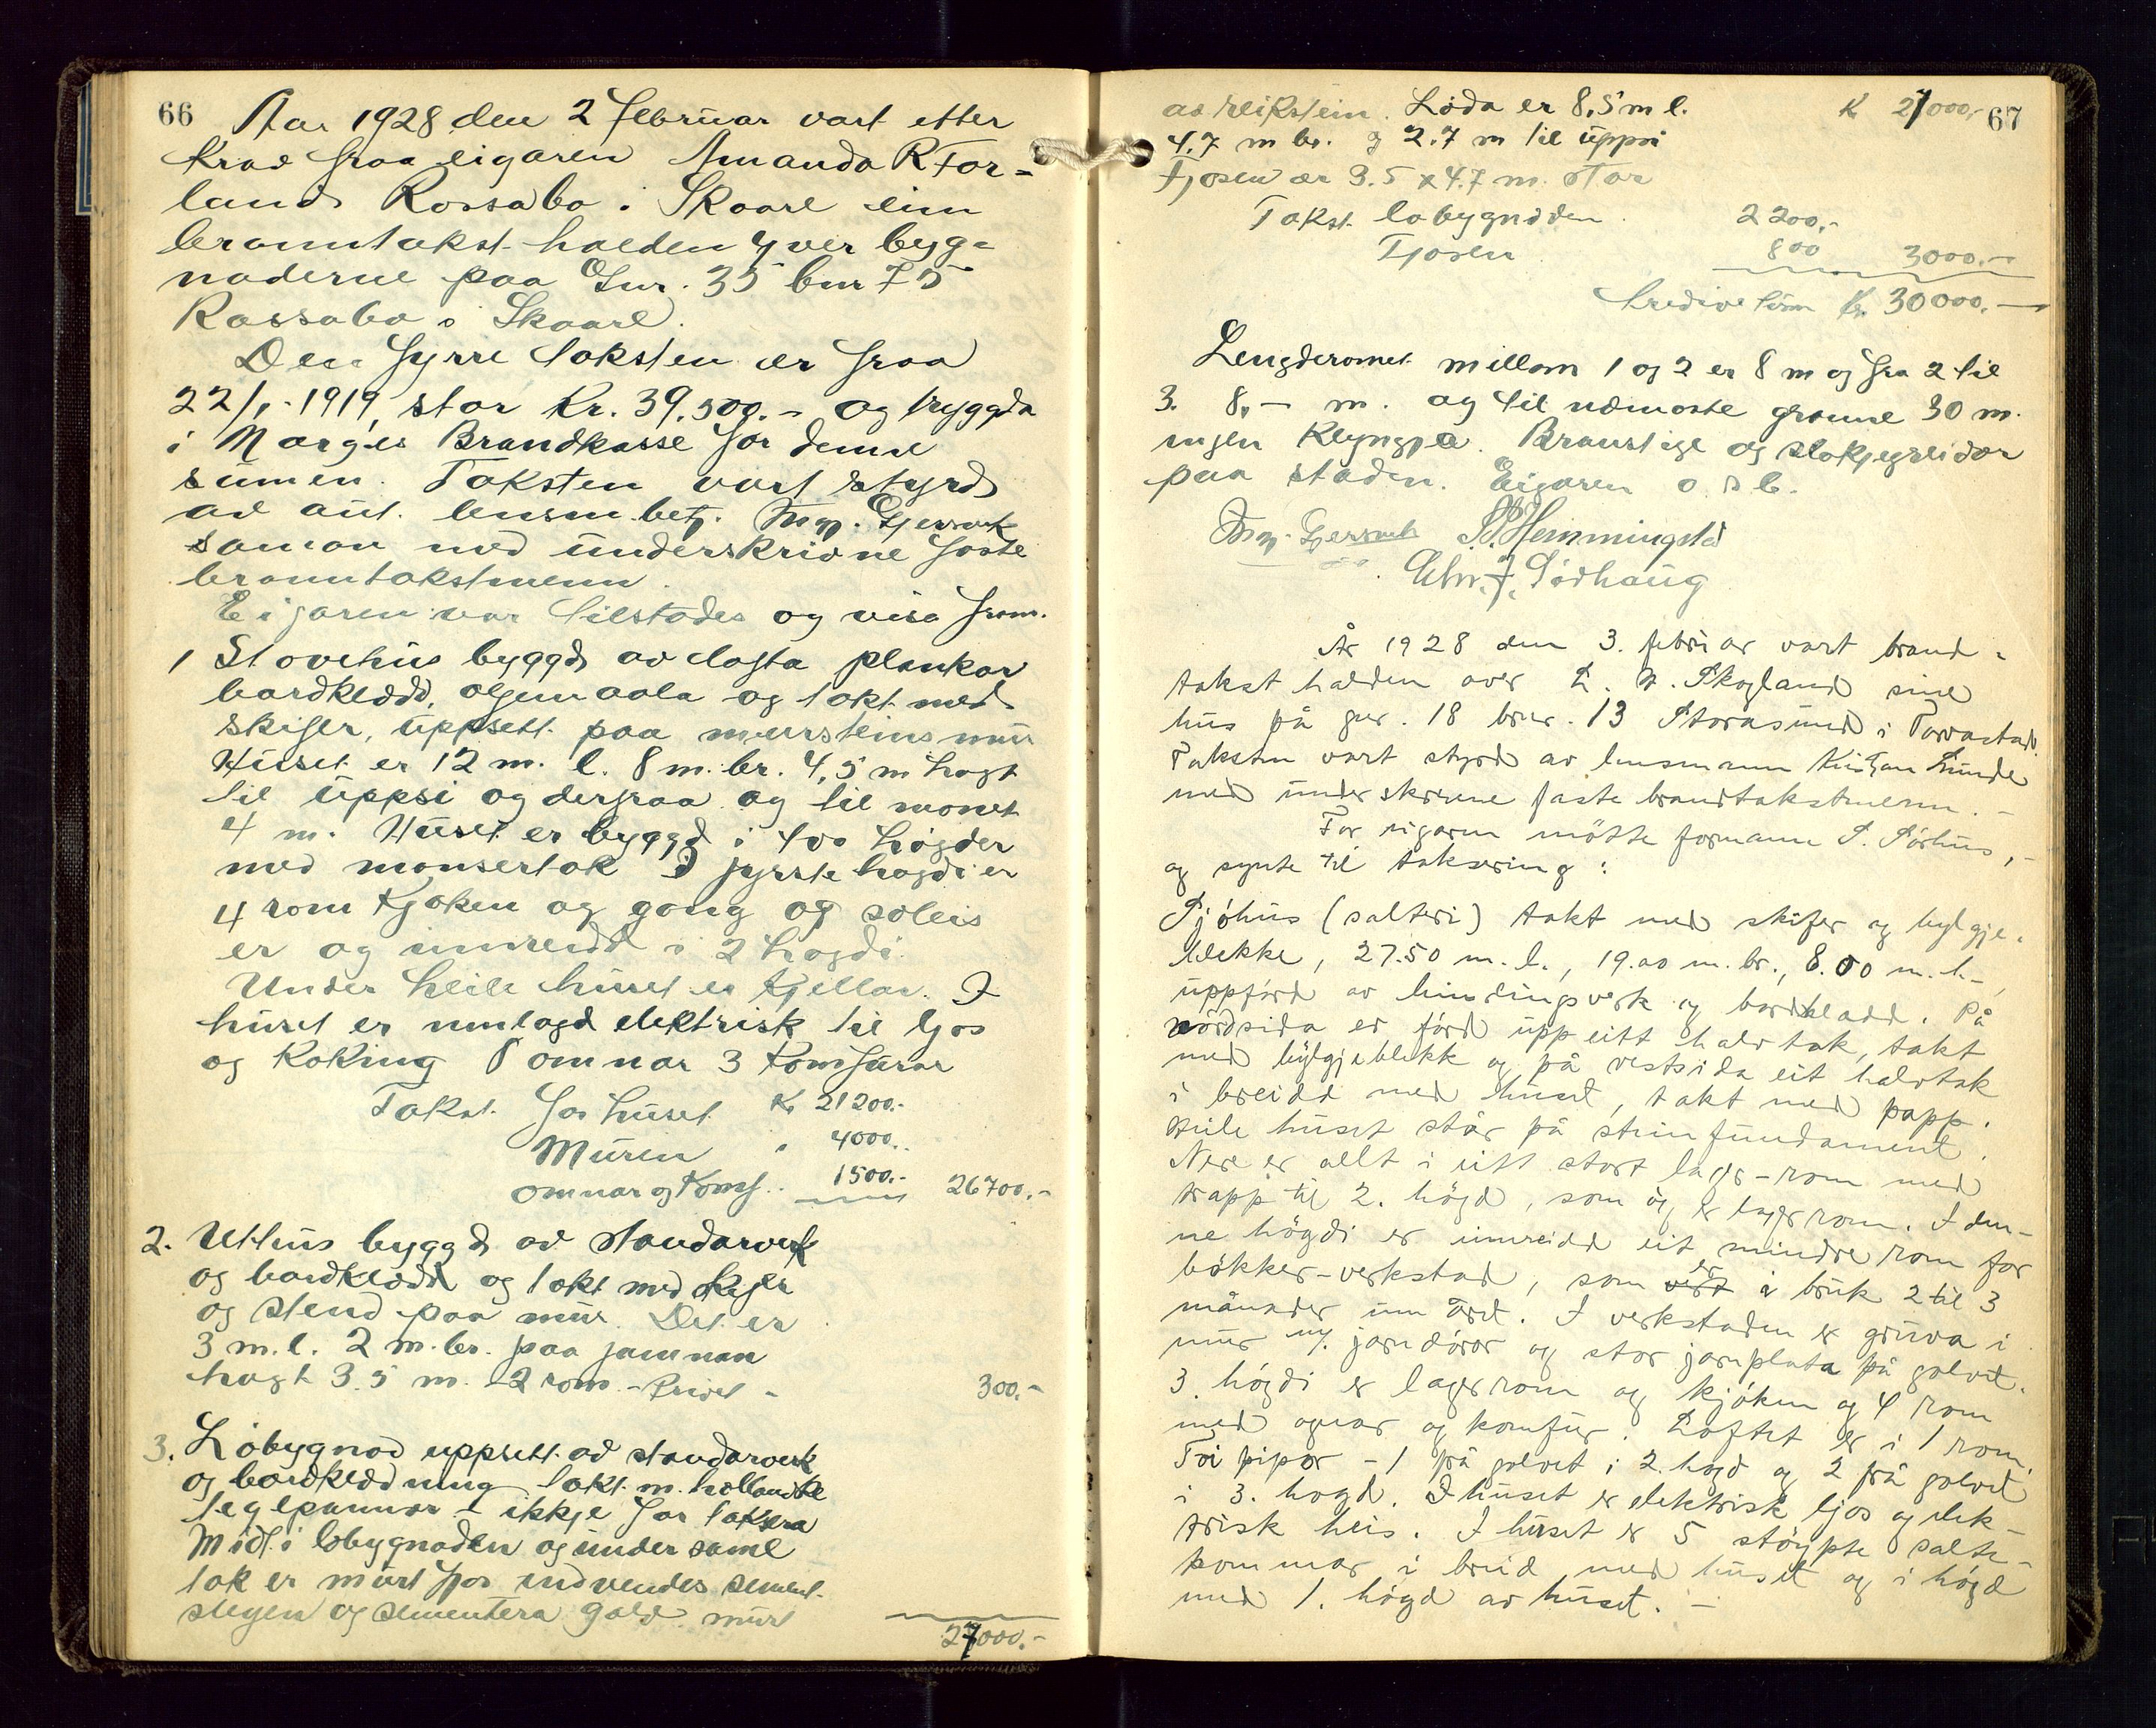 66 Aar 1928 den 2 februar vart etter
krav fraa eigaren Amanda R For-
land Rossabø i Skaare ein
branntakst halden yver byg-
naderne paa Gnr. 35 bnr 75
Rossabø i Skaare.
Den fyrre taksten er fraa
22/1-1919, stor Kr. 39.500.- og tryggda
i Norges Brandkasse for denne
sumen. Taksten vart styrd
av aut. lensm.betj. Mgn. Gjersvik
saman med underskrivne faste
branntakstmenn.
Eigaren var tilstades og visa fram.
1 Stovehus byggd av lafta plankar
bordklædd, oljemaala og takt med
skifer, uppsett paa mursteinsmur
Huset er 12 m. l. 8 m. br. 4,5 m høgt
til uppsi og derfraa og til mønet
4 m. Huset er byggd i tvo høgder
med mansertak I fyrste høgdi er
4 rom kjøken og gong og soleis
er og innreidd i 2 høgdi.
Under heile huset er kjellar. I
huset er innlagd elektrisk til ljos
og koking 8 omnar 3 komfurar
Takst. for huset Kr 21200.-
Muren " 4000.-
omnar og komf. 1500.- 26700.-
2. Uthus byggd av standarverk
og bordklædd og takt med skifer
og stend paa mur. Det er
3 m. l. 2 m. br. paa jamnan
høgt 3.5 m. - 2 rom - Privet - 300.-
3. Løbygnad uppsett av standarverk
og bordklædning takt m. hollandske
teglpannor - ikkje for taksera
Midt i løbygnaden og under same
tak er murt fjos indvendes sement-
slegen og sementera golv. murt
27000.-
av teikstein. Løda er 8,5 m l. K 27000,- 67
4.7 m br. og 2.7 m til uppsi
Fjosen er 3.5 x 4.7 m. stor
Takst løbygnaden 2200.-
Fjosen 800 3000.-
tredive tusn Kr. 30000.-
Lengderomet millom 1 og 2 er 8 m og fra 2 til
3. 8,- m. og til næmaste granne 30 m.
ingen klyngja. Brannstige og slokjegreidor
paa staden. Eigaren o s b.
Mgn. Gjersvik S. Hemmingstad
Chr. J. Sørhaug
År 1928 den 3. februar vart brand-
takst halden over L. N. Skogland sine
hus på gnr. 18 bnr. 13 Storasund i Torvastad.
Taksten vart styrd av lensmann Kristian Lunde
med underskrivne faste brandtakstmenn. -
For eigaren møtte formann S. Sørhus, -
og synte til taksering:
Sjøhus (salteri) takt med skifer og bylgje-
blekke, 27.50 m. l., 19.00 m. br., 8.00 m. h.,
uppførd av bindingsverk og bordkledd. På
nordsida er førd upp eitt halvtak, takt
med bylgjeblekk og på vestsida eit halvtak
i breidd med huset, takt med papp.
Heile huset står på steinfundament.
Nere er allt i eitt stort lager-rom med
trapp til 2. høgd, som òg er lagerrom. I den-
ne høgdi er innreidd eit mindre rom for
bøkker-verkstad, som er i bruk 2 til 3
månader um året. I verkstaden er gruva i
mur m/ jarndører og stor jarnplata på golvet.
3. høgdi er lagerrom og kjøken og 4 rom
med omnar og komfur. Loftet er i 1 rom.
Tri pipor - 1 frå golvet i 2. høgd og 2 frå golvet
i 3. høgd. I huset er elektrisk ljos og elek-
trisk heis. I huset er 5 støypte salte-
kommar i breid med huset og i høgd
med 1. høgd av huset. -